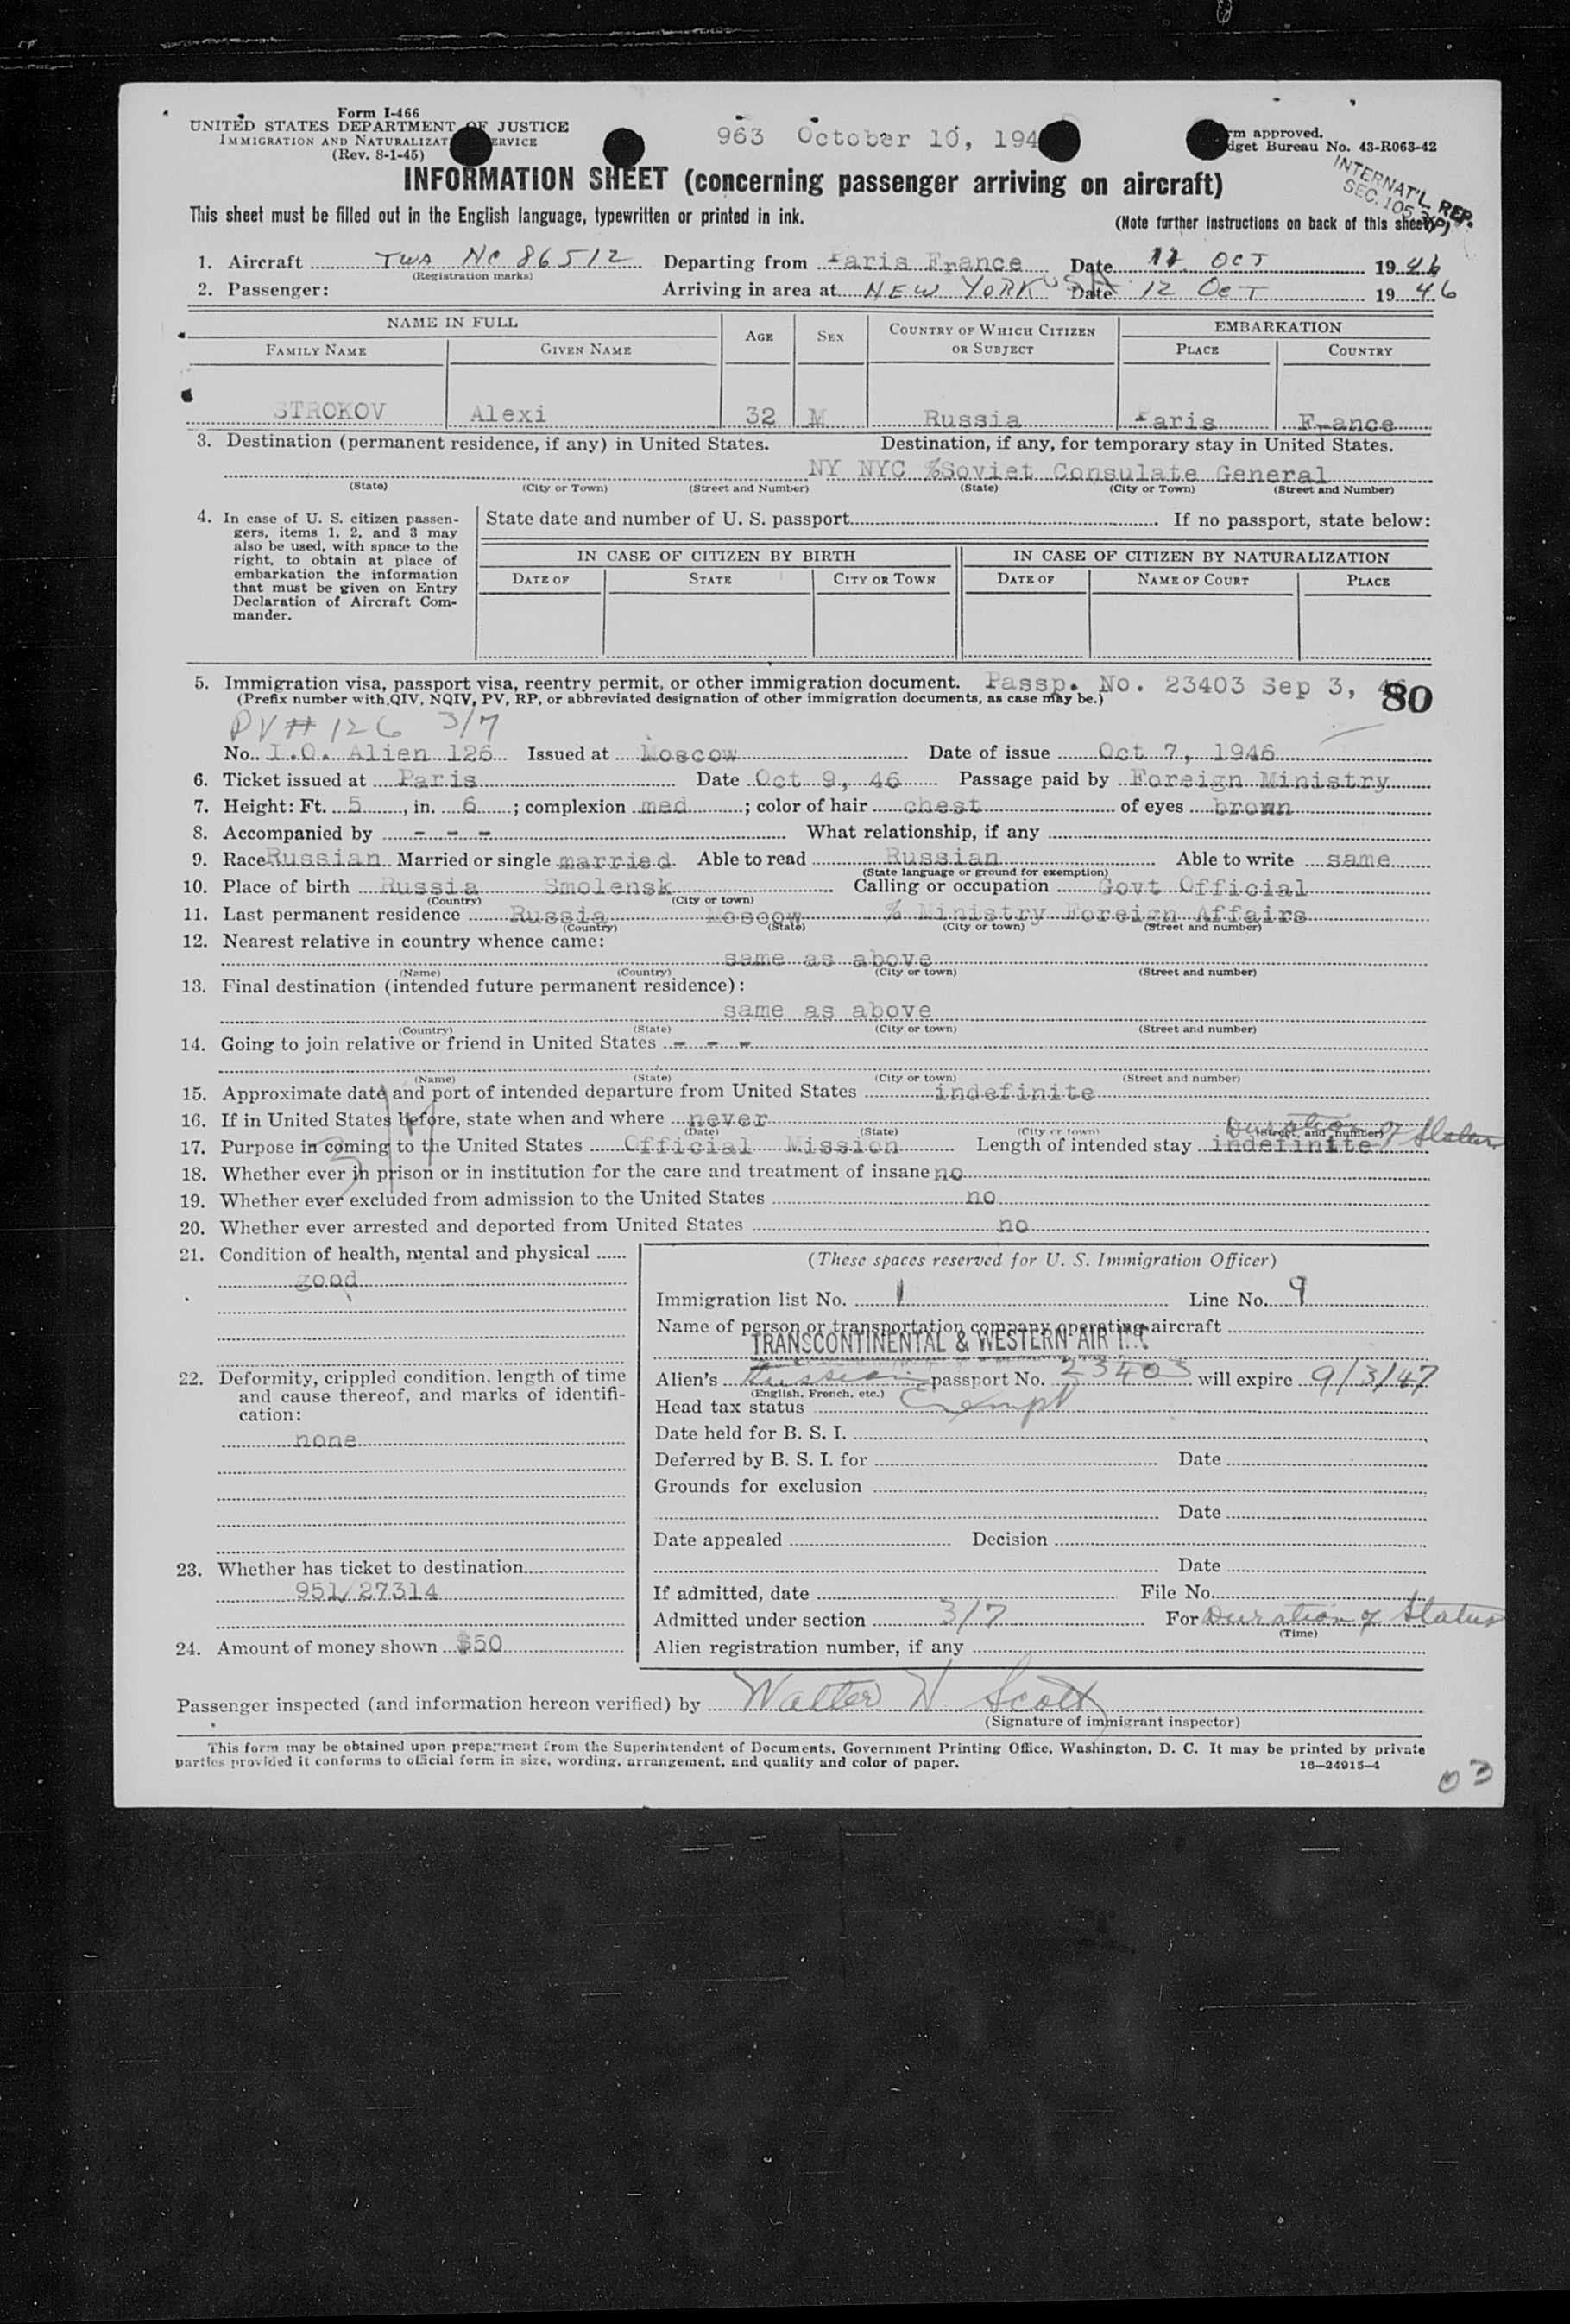 Form I-466
UNITED STATES DEPARTMENT OF JUSTICE
IMMIGRATION AND NATURALIZAT ERVICE
(Rev. 8-1-45)
963 October 10, 194
rm approved.
dget Bureau No. 43-R063-42
INTERNAT'L. REP.
SEC. 105
INFORMATION SHEET (concerning passenger arriving on aircraft)
This sheet must be filled out in the English language, typewritten or printed in ink.
(Note further instructions on back of this sheet)
1. Aircraft TWA NC 86512 Departing from Paris France Date 11 OCT 1946
(Registration marks)
2. Passenger: Arriving in area at NEW YORK USA Date 12 OCT 1946
NAME IN FULL AGE SEX COUNTRY OF WHICH CITIZEN OR SUBJECT EMBARKATION
FAMILY NAME GIVEN NAME PLACE COUNTRY
STROKOV Alexi 32 M Russia Paris France
3. Destination (permanent residence, if any) in United States. Destination, if any, for temporary stay in United States.
NY NYC %Soviet Consulate General
(State) (City or Town) (Street and Number) (State) (City or Town) (Street and Number)
4. In case of U. S. citizen passengers, items 1, 2, and 3 may also be used, with space to the right, to obtain at place of embarkation the information that must be given on Entry Declaration of Aircraft Commander.
State date and number of U. S. passport If no passport, state below:
IN CASE OF CITIZEN BY BIRTH IN CASE OF CITIZEN BY NATURALIZATION
DATE OF STATE CITY OR TOWN DATE OF NAME OF COURT PLACE
5. Immigration visa, passport visa, reentry permit, or other immigration document. Passp. No. 23403 Sep 3, 46
(Prefix number with QIV, NQIV, PV, RP, or abbreviated designation of other immigration documents, as case may be.)
80
PV # 126 3/7
No. I.O. Alien 126 Issued at Moscow Date of issue Oct 7, 1946
6. Ticket issued at Paris Date Oct 9, 46 Passage paid by Foreign Ministry
7. Height: Ft. 5, in. 6; complexion med; color of hair chest of eyes brown
8. Accompanied by - - - What relationship, if any
9. Race Russian Married or single married Able to read Russian Able to write same
(State language or ground for exemption)
10. Place of birth Russia Smolensk Calling or occupation Govt Official
(Country) (City or town)
11. Last permanent residence Russia Moscow % Ministry Foreign Affairs
(Country) (State) (City or town) (Street and number)
12. Nearest relative in country whence came:
same as above
(Name) (Country) (City or town) (Street and number)
13. Final destination (intended future permanent residence):
same as above
(Country) (State) (City or town) (Street and number)
14. Going to join relative or friend in United States - - -
(Name) (State) (City or town) (Street and number)
15. Approximate date and port of intended departure from United States indefinite
16. If in United States before, state when and where never
(Date) (State) (City or town) (Street and number)
Duration of Status
17. Purpose in coming to the United States Official Mission Length of intended stay indefinite
18. Whether ever in prison or in institution for the care and treatment of insane no
19. Whether ever excluded from admission to the United States no
20. Whether ever arrested and deported from United States no
21. Condition of health, mental and physical
good
22. Deformity, crippled condition, length of time and cause thereof, and marks of identification:
none
23. Whether has ticket to destination
951/27314
24. Amount of money shown $50
(These spaces reserved for U. S. Immigration Officer)
Immigration list No. 1 Line No. 9
Name of person or transportation company operating aircraft
TRANSCONTINENTAL & WESTERN AIR
Alien's Russian passport No. 23403 will expire 9/3/47
(English, French, etc.)
Head tax status Exempt
Date held for B. S. I.
Deferred by B. S. I. for Date
Grounds for exclusion
Date
Date appealed Decision
Date
If admitted, date File No.
Admitted under section 3/7 For Duration of Status
(Time)
Alien registration number, if any
Passenger inspected (and information hereon verified) by Walter W Scott
(Signature of immigrant inspector)
This form may be obtained upon prepayment from the Superintendent of Documents, Government Printing Office, Washington, D. C. It may be printed by private
parties provided it conforms to official form in size, wording, arrangement, and quality and color of paper.
16—24915-4
03